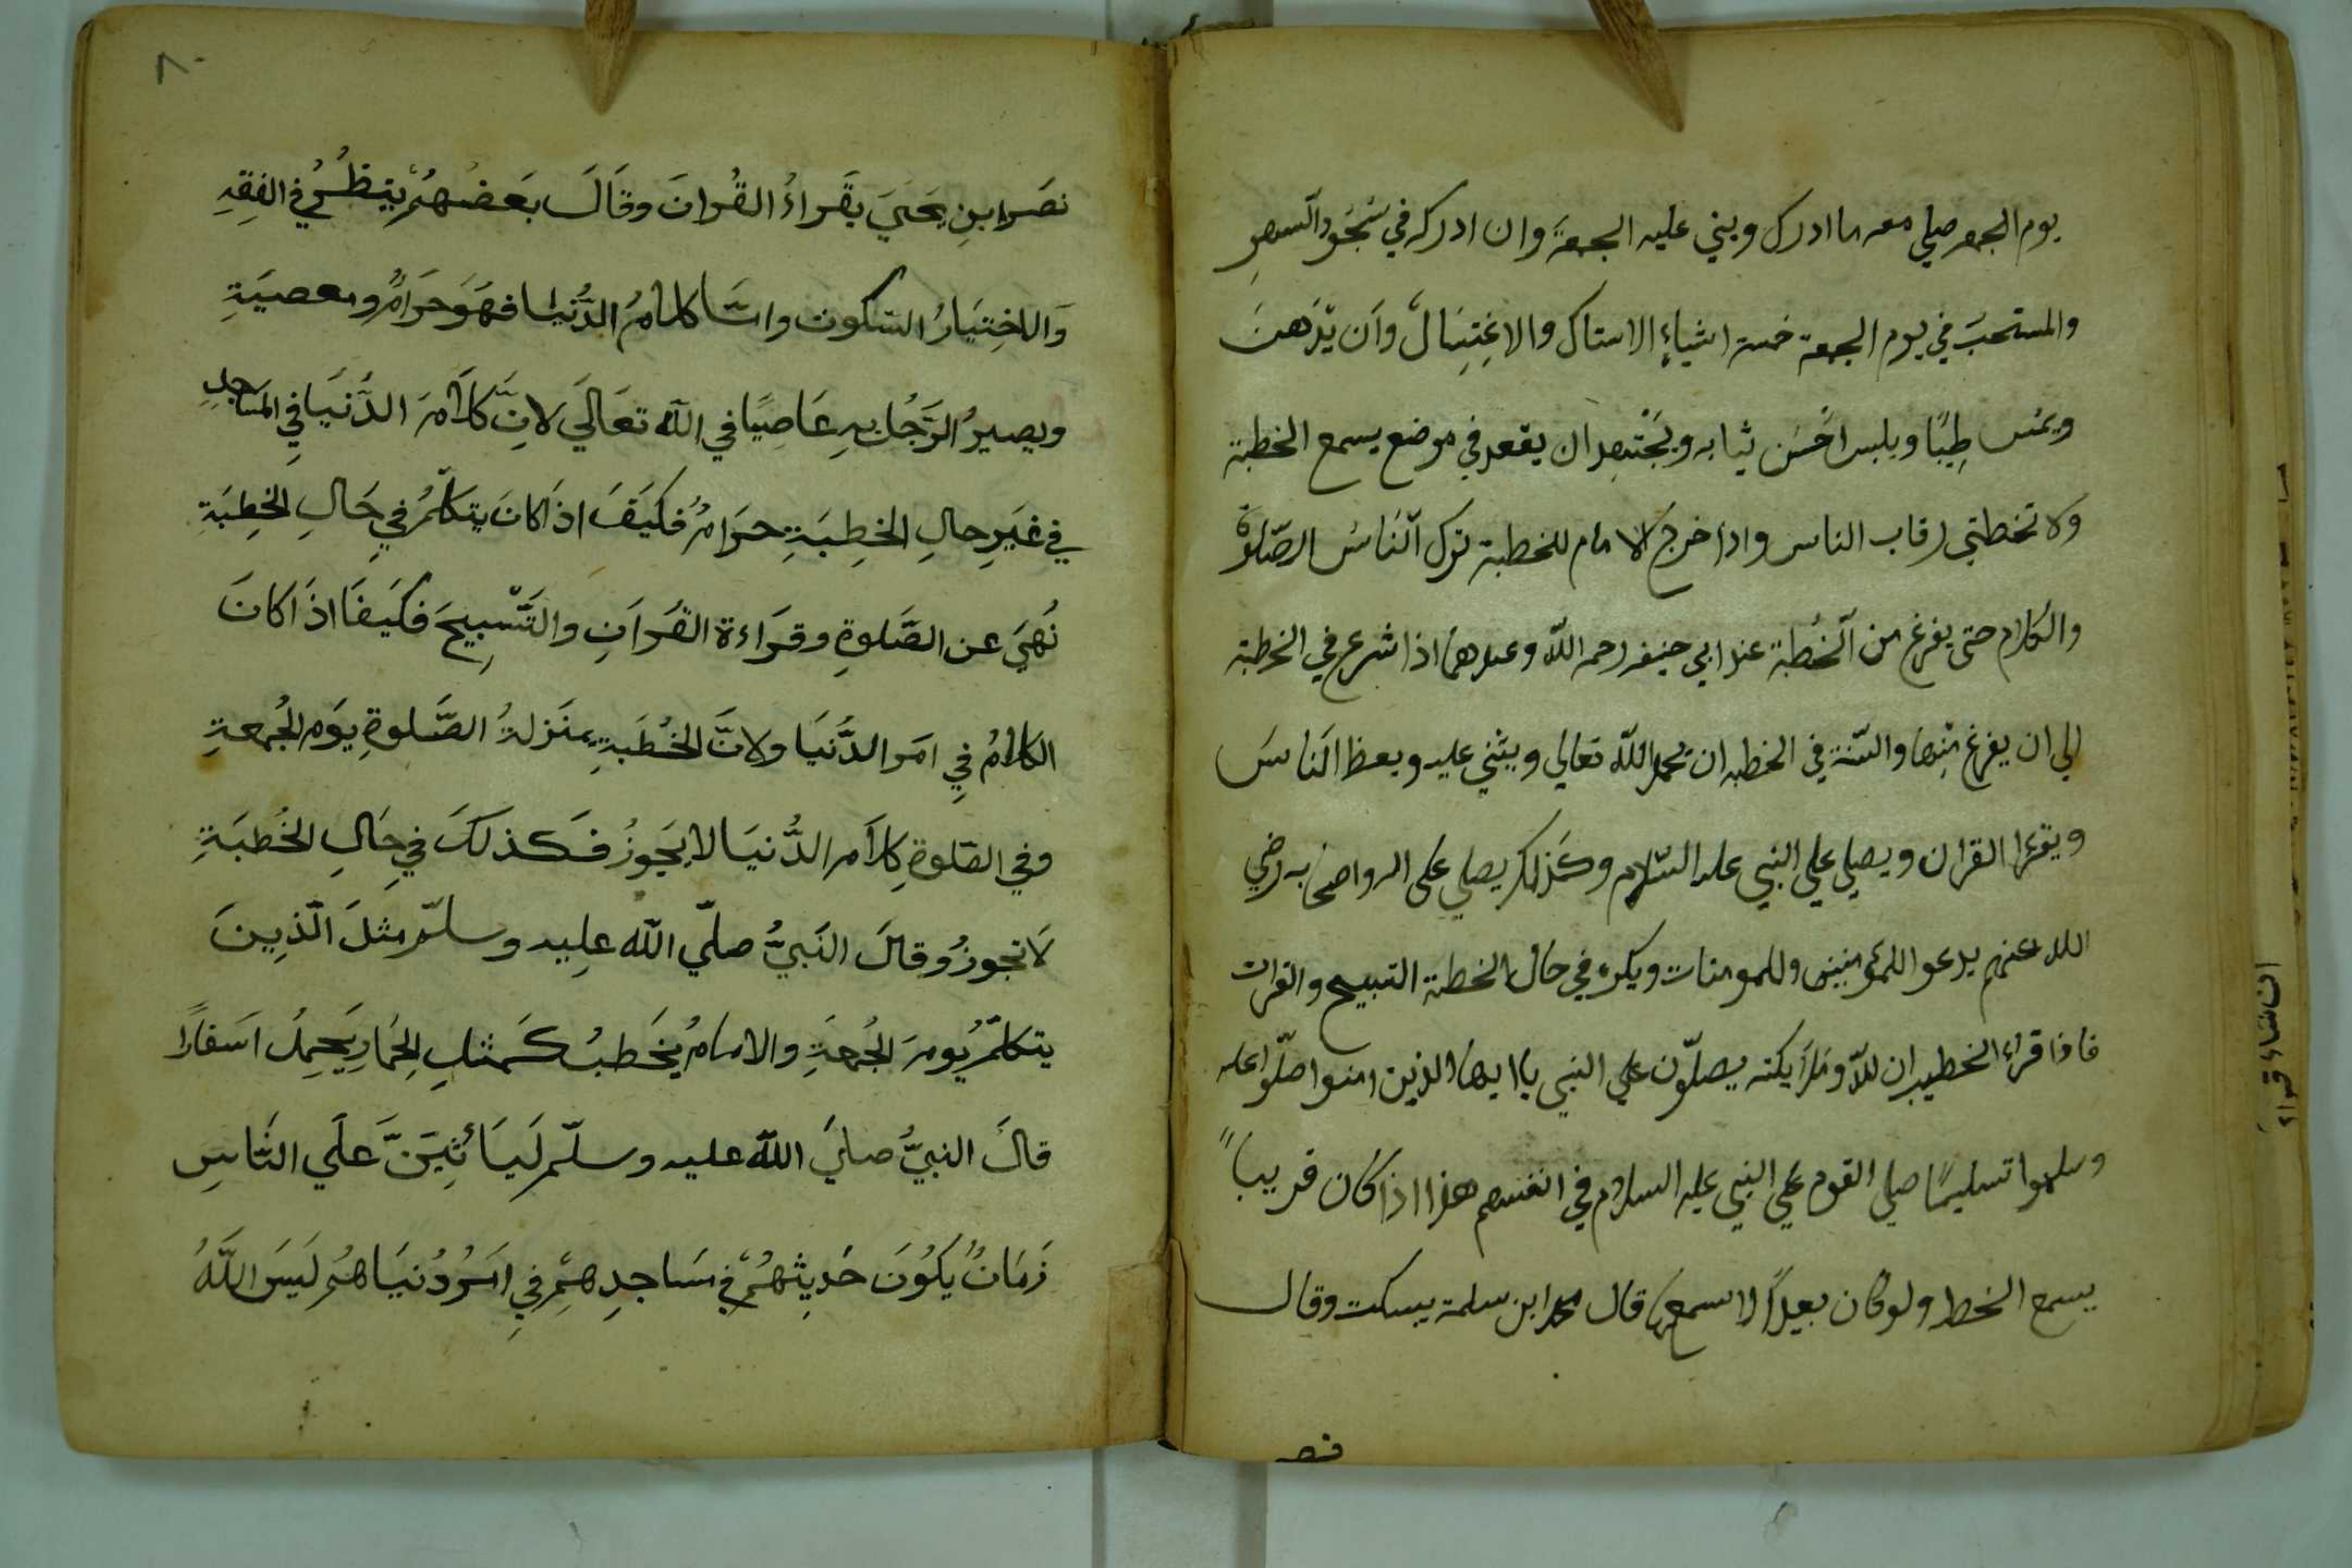 يوم الجمعه صلي معه ما ادرك وبني عليه الجمعةَ وان ادركه في سُجُود السهوِ
والمستحبَ في يوم الجمعة خمسة اشياءٍ الاستاك والاغِتِسَالُ وَاَن يّدهنَ
ويمس طِيبًا ويلبس احْسَن ثيابه ويَجْتَهِد ان يقعد في موضع يسمع الخطبة
ولا تخطتي رقاب الناس واذا خرج الامام للخطبة ترك النَاسُ الصّلوةَ
والكلام حتى يفرغ من الخُطْبة عند ابي حنيفه رحمه اللّه وعندهما اذا شرع في الخطبة
الي ان يفرغ مِنها والسّنة في الخطبه ان يحمد اللّه تعالي ويثني عليه ويعظ النَاسَ
ويقرا القران ويصلي علي النبي عليه السّلام وكَذلك يصلي على اله واصحابه رضي
الله عنهم يدعو اللمؤمنين وللمومنات ويكره في حال الخطبة التسبيح والقرات
فاذا قراء الخطيب ان للّه وملايكته يصلّون علي النبي يا ايها الذين امنوا صلّوا عليه
وسلموا تسليمًا صلي القوم علي النبي عليه السلام في انفسهم هذا اذا كان قريباً
يسمع الخط ولو كان بعيدًا لا يسمع قال محمد ابن سلمة يسكت وقال
نص
٨٠
نصَرابنِ يَحيَيَ يقَراءُ القُرانَ وقَالَ بَعَضُهُمْ يَنظُرُ في الفِقِهِ
وَالاخِتيَارُ السّكوت وامّا كلامُ الدُّنْيا فهَوَ حرَامٌ ومعصيَةِ
ويصيرُ الرَجُل بهِ عَاصِيًا في اللّه تعَاليَ لانَّ كلَامَ الدُّنيَا في المسَاجِدِ
في غيَرِ حالِ الخِطِبَةِ حرَامُ فكَيَفَ اذَا كانَ يتكلّمُ في حَالِ الخِطِبَةِ
نُهيَ عن الصَّلوةِ وقرَاءة القُرَانِ والتَسْبِيحَ فكَيفَا اذَا كانَ
الكلامُ في امَر الدُّنيَا ولانَّ الخُطَبةِ بمنَزلةُ الصَّلوةِ يوَم الجُمعةِ
وفي الصّلوةِ كلاَمر الدُّنيَا لا يَجَوزُ فَكذلكَ في حَالِ الخُطبَةِ
لَا تجوزُ وقالَ النَبيُّ صلّي اللّه علِيه وسلّم مثلَ الّذِينَ
يتكلّمُ يُومَ الجُمعةِ والامامُ يَخَطبُ كَمثلِ الحِمَارِ يَحِمِلُ اسَفارًا
قالَ النبيُّ صليَ اللّه عليه وسلّم لَيَائتِيَنَّ عَلَي النّاسِ
زَمَانٌ يَكوُنَ حَدِيثهُمْ في مسَاجدِهمِْ في امَرُ دُنيَاهُم لَيسَ اللَّهُ